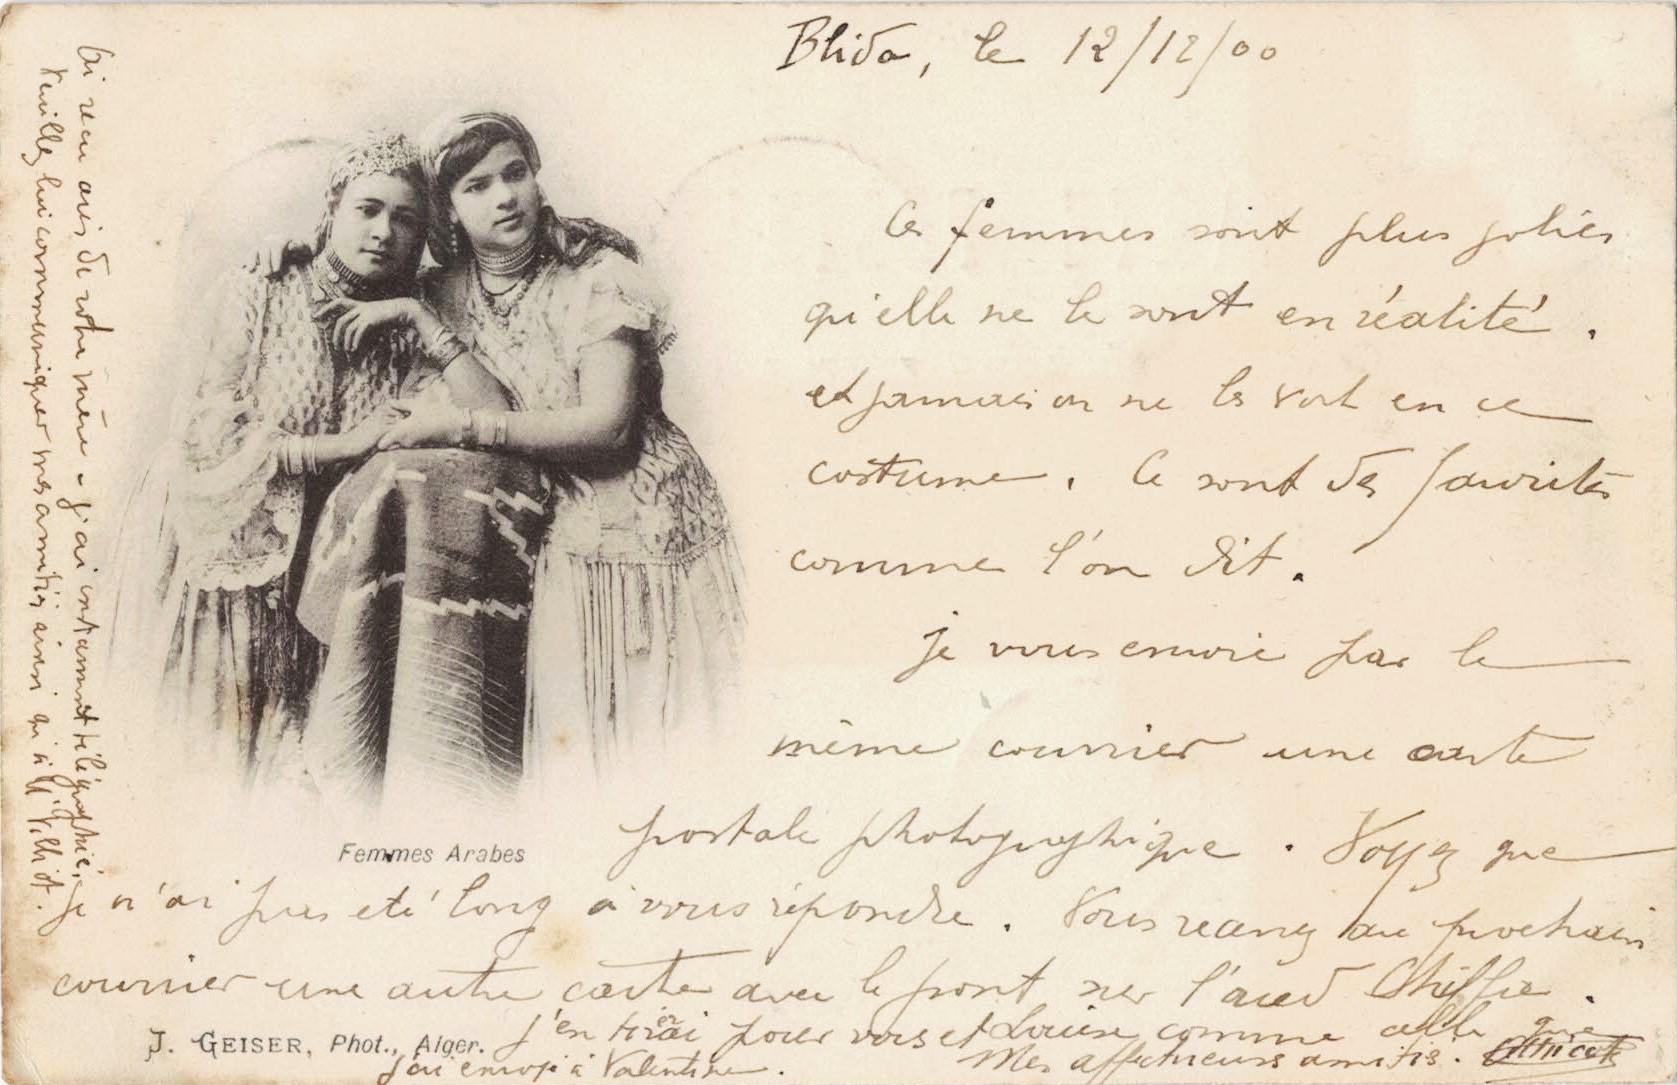 Blida, le 12/12/00
Ces femmes sont plus jolies
qu'elle ne le sont en réalité.
et jamais on ne les voit en ce
costume. Ce sont des favorites
comme l'on dit.
je vous envoie par le
même courrier une carte
postale photographique. Voyez que
je n'ai pas été long à vous répondre. Vous recevrez au prochain
courrier une autre carte avec le pont sur l'oued Chiffa.
j'en tirerai pour vous et Louise comme celle que
j'ai envoyé à Valentine.
Mes affectueuses amitiés.
Femmes Arabes
J. GEISER, Phot., Alger.
reçu avis de votre mère - j'ai télégraphié,
Veuillez lui communiquer mes amitiés ainsi qu'à